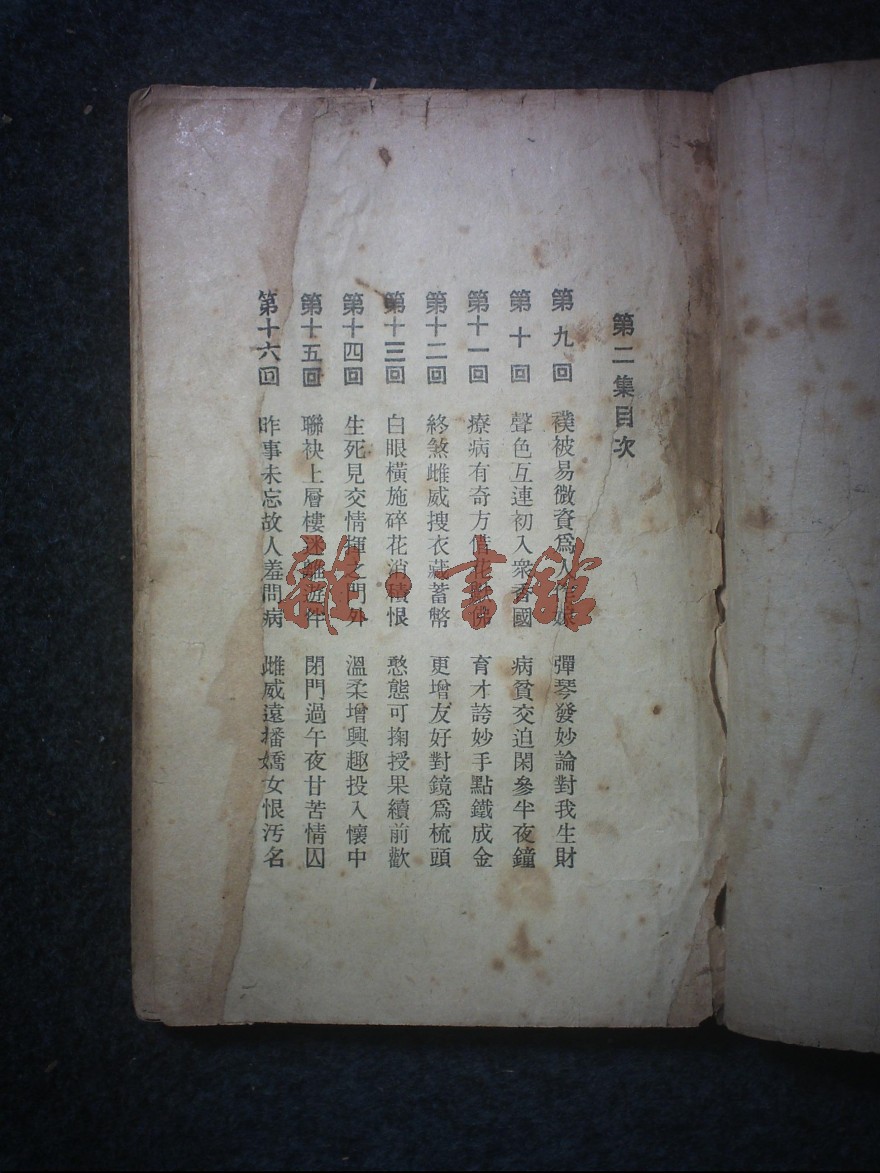 第二集目次
第九回 襆被易微資爲人作嫁 彈琴發妙論對我生財
第十回 聲色互連初入衆香國 病貧交迫閑參半夜鐘
第十一回 療病有奇方借花獻佛 育才誇妙手點鐵成金
第十二回 終煞雌威搜衣藏蓄幣 更增友好對鏡爲梳頭
第十三回 白眼橫施碎花消積恨 憨態可掬授果續前歡
第十四回 生死見交情揮之門外 溫柔增興趣投入懷中
第十五回 聯袂上層樓迷離遊伴 閉門過午夜甘苦情囚
第十六回 昨事未忘故人羞問病 雌威遠播嬌女恨污名
雜·書館